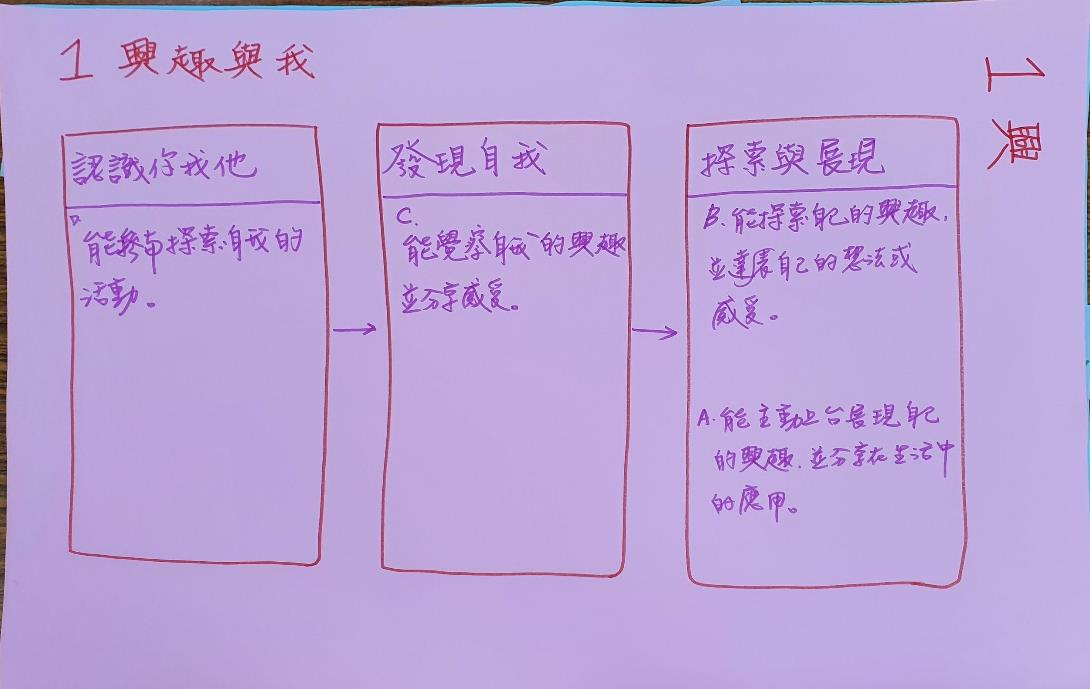 1 興趣與我
1 興
認識你我他
D
能參與探索自我的
活動。
發現自我
C.
能覺察自我的興趣
並分享感受。
探索與展現
B. 能探索自己的興趣,
並表達自己的想法或
感受。
A. 能主動上台展現自己
的興趣,並分享在生活中
的應用。